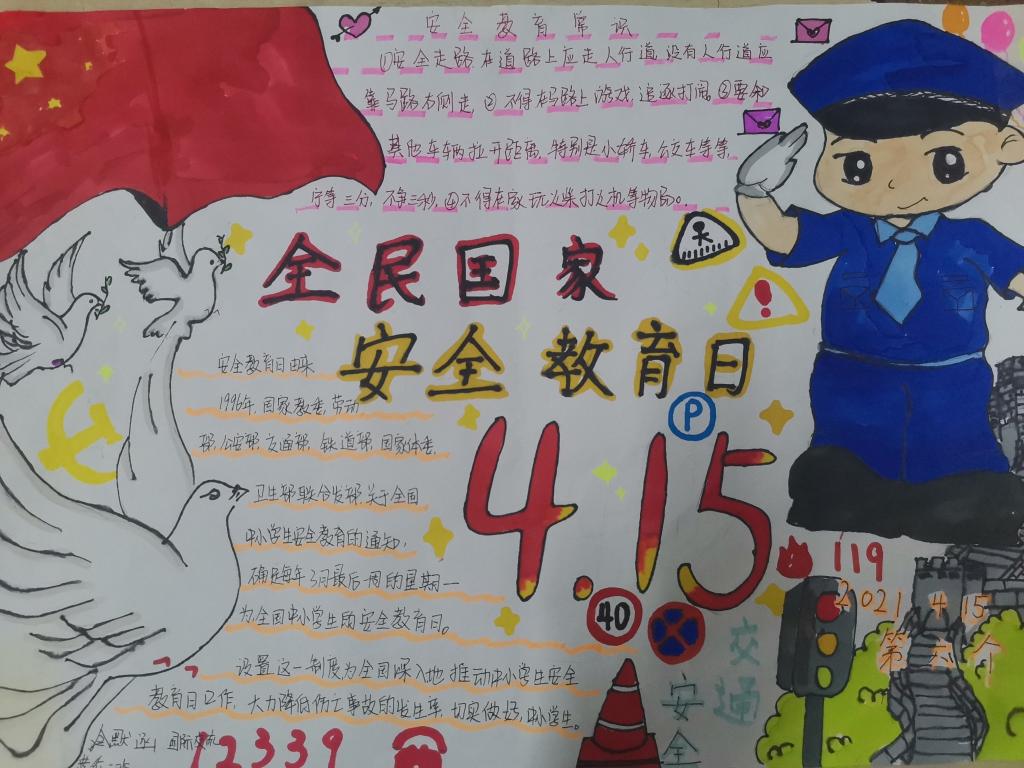 安全教育常识
①安全走路 在道路上应走人行道,没有人行道应
靠马路右侧走 ② 不得在马路上游戏,追逐打闹 ③要和
其他车辆拉开距离,特别是小轿车,公交车等等,
宁等三分,不争三秒,④不得在家玩火柴打火机等物品。
全民国家
安全教育日
4.15
P
安全教育日由来
1996年,国家教委,劳动
部,公安部,交通部,铁道部,国家体委,
卫生部联合发部关于全国
中小学生安全教育的通知,
确定每年3月最后一周的星期一
为全国中小学生的安全教育日。
设置这一制度为全国深入地推动中小学生安全
教育日工作,大力降低伤亡事故的发生率,切实做好,中小学生。
12339
40
交通
安全
119
2021 4 15
第六个